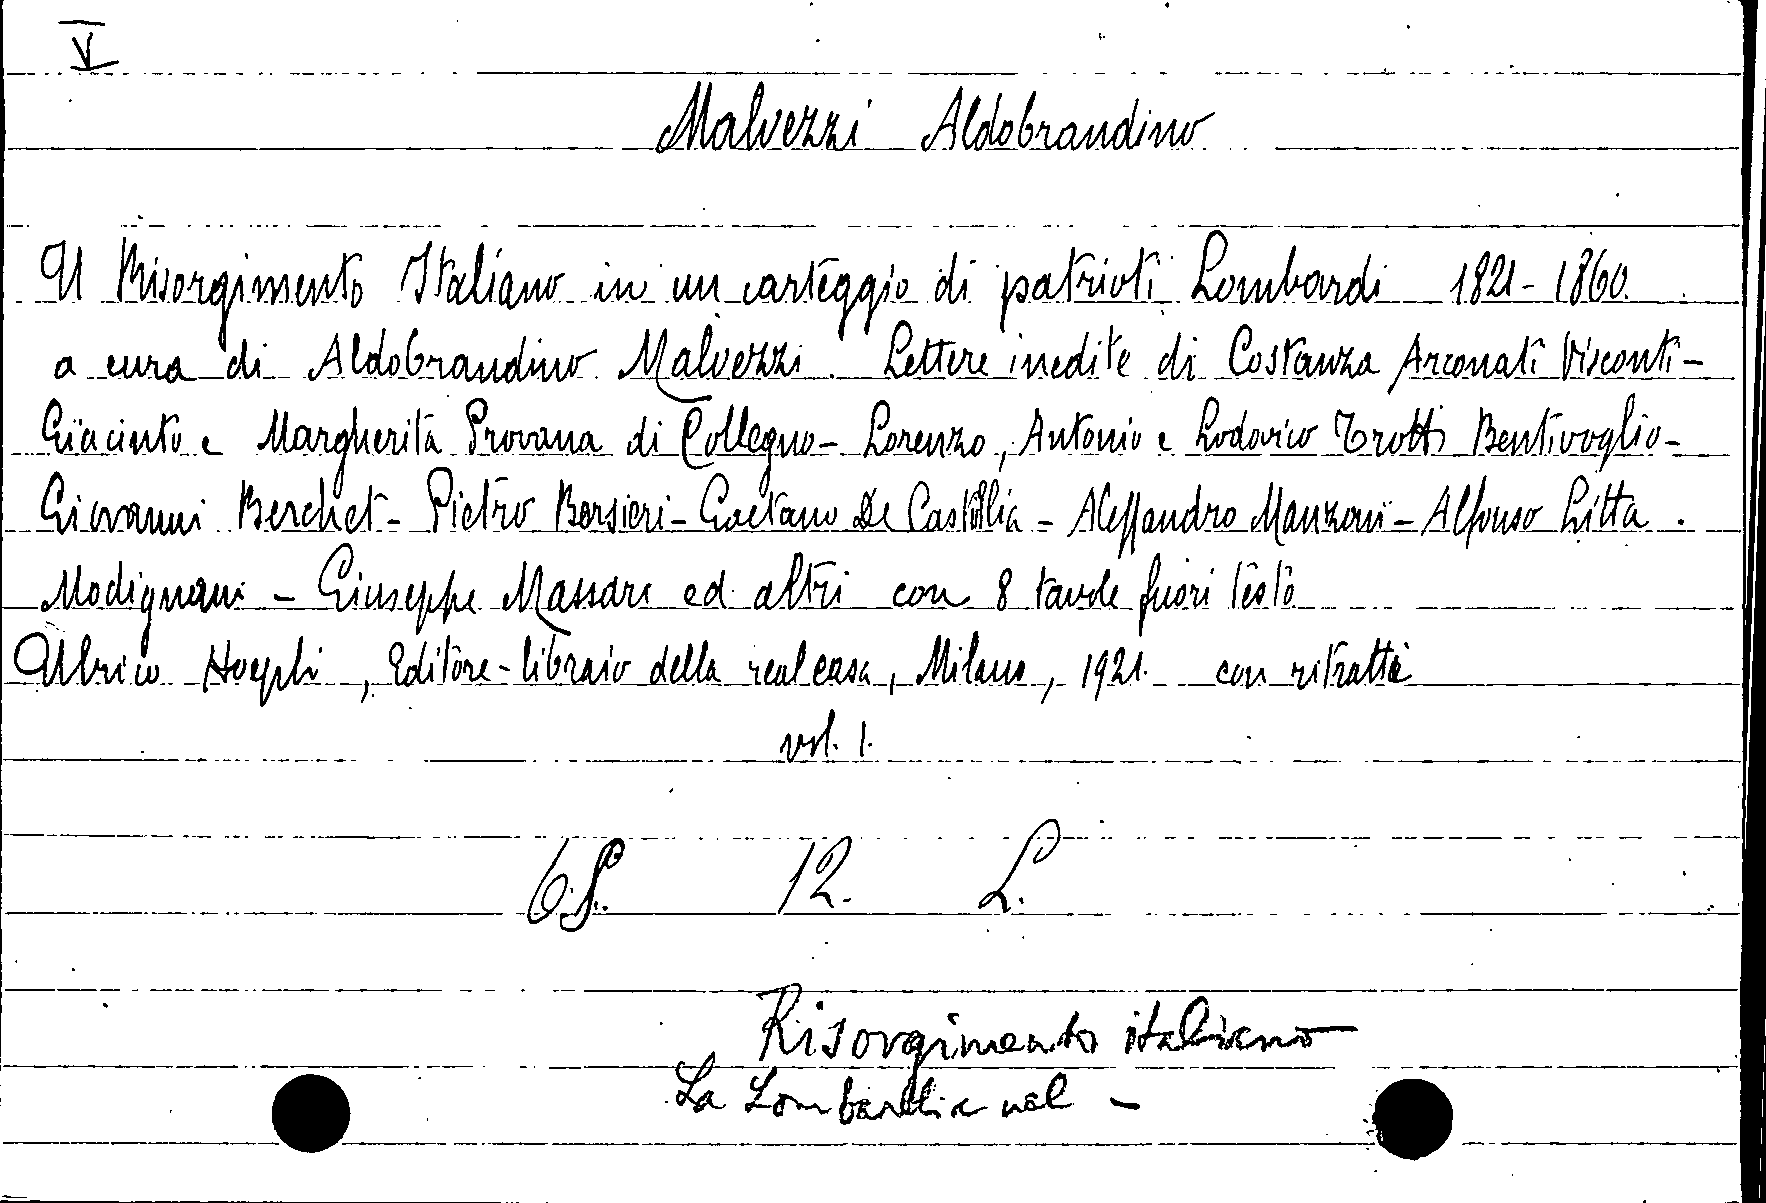 V
Malvezzi Aldobrandino
Il Risorgimento Italiano in un carteggio di patrioti Lombardi 1821-1860.
a cura di Aldobrandino Malvezzi. Lettere inedite di Costanza Arconati Visconti-
Giacinto e Margherita Provana di Collegno- Lorenzo, Antonio e Lodovico Trotti Bentivoglio-
Giovanni Berchet- Pietro Borsieri- Gaetano De Castillia - Alessandro Manzoni- Alfonso Litta
Modignani - Giuseppe Massari ed altri con 8 tavole fuori testo
Ulrico Hoepli, Editore-libraio della real casa, Milano, 1921. con ritratti
vol. 1.
6.S. 12. L.
Risorgimento italiano
La Lombardia nel -